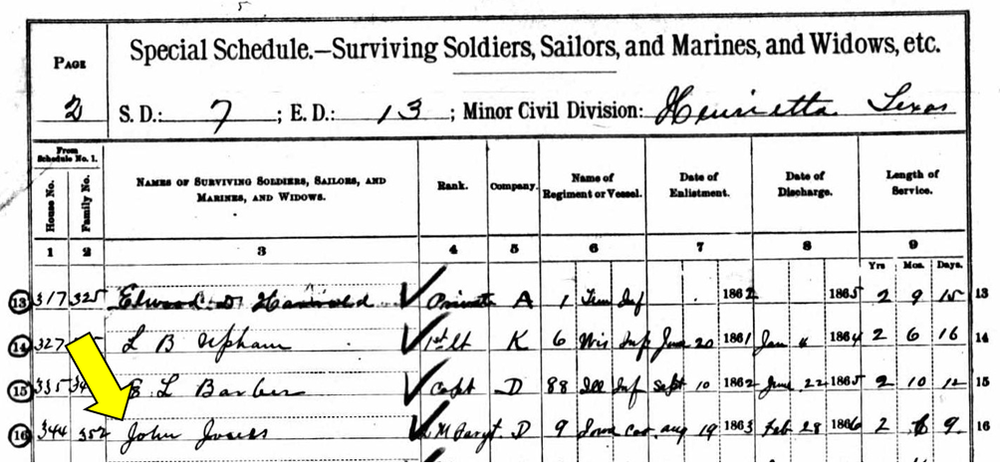 Special Schedule.—Surviving Soldiers, Sailors, and Marines, and Widows, etc.
PAGE
2
S. D.: 7 ; E. D.: 13 ; Minor Civil Division: Henrietta Texas
From Schedule No. 1.
House No. Family No. NAMES OF SURVIVING SOLDIERS, SAILORS, AND MARINES, AND WIDOWS. Rank. Company. Name of Regiment or Vessel. Date of Enlistment. Date of Discharge. Length of Service.
1 2 3 4 5 6 7 8 9
Yrs Mos. Days.
13 317 325 Edward D Private A 1 Tenn Inf 1862 1865 2 9 15 13
14 327 L B Upham 1st Lt K 6 Wis Inf June 20 1861 Jan 1864 2 6 16 14
15 335 34 E L Barber Capt D 88 Ill Inf Sept 10 1862 June 22 1865 2 10 12 15
16 344 352 John Q M Sergt D 9 Iowa Cav Aug 19 1863 Feb 28 1866 2 6 9 16